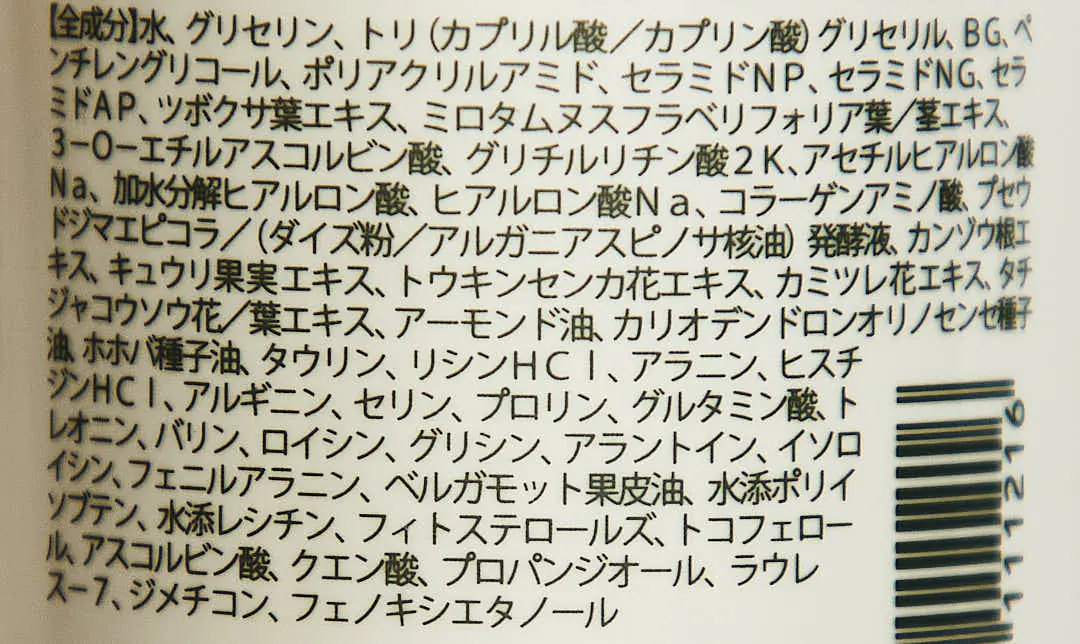 【全成分】水、グリセリン、トリ（カプリル酸／カプリン酸）グリセリル、BG、ペ
ンチレングリコール、ポリアクリルアミド、セラミドNP、セラミドNG、セラ
ミドAP、ツボクサ葉エキス、ミロタムヌスフラベリフォリア葉／茎エキス、
3－O－エチルアスコルビン酸、グリチルリチン酸2K、アセチルヒアルロン酸
Na、加水分解ヒアルロン酸、ヒアルロン酸Na、コラーゲンアミノ酸、プセウ
ドジマエピコラ／（ダイズ粉／アルガニアスピノサ核油）発酵液、カンゾウ根エ
キス、キュウリ果実エキス、トウキンセンカ花エキス、カミツレ花エキス、タチ
ジャコウソウ花／葉エキス、アーモンド油、カリオデンドロンオリノセンセ種子
油、ホホバ種子油、タウリン、リシンHCl、アラニン、ヒスチ
ジンHCl、アルギニン、セリン、プロリン、グルタミン酸、ト
レオニン、バリン、ロイシン、グリシン、アラントイン、イソロ
イシン、フェニルアラニン、ベルガモット果皮油、水添ポリイ
ソブテン、水添レシチン、フィトステロールズ、トコフェロー
ル、アスコルビン酸、クエン酸、プロパンジオール、ラウレ
ス－7、ジメチコン、フェノキシエタノール
111216